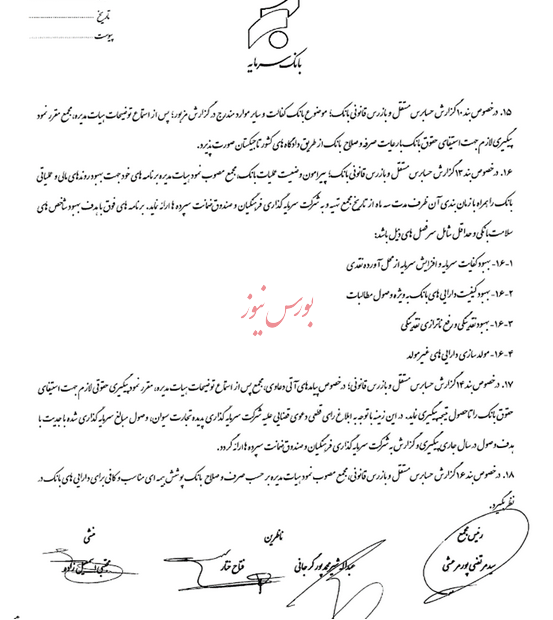 تاریخ
پیوست
بانک سرمایه
۱۵. درخصوص بند ۱۰ گزارش حسابرس مستقل و بازرس قانونی بانک؛ موضوع بانک کفالت و سایر موارد مندرج در گزارش مزبور؛ پس از استماع توضیحات هیات مدیره، مجمع مقرر نمود
پیگیری لازم جهت استیفای حقوق بانک با رعایت صرفه و صلاح بانک از طریق دادگاه های کشور تاجیکستان صورت پذیرد.
۱۶. درخصوص بند ۱۳ گزارش حسابرس مستقل و بازرس قانونی بانک؛ پیرامون وضعیت عملیات بانک، مجمع مصوب نمود هیات مدیره برنامه های خود جهت بهبود روندهای مالی و عملیاتی
بانک را همراه با زمان بندی آن ظرف مدت سه ماه از تاریخ مجمع تهیه و به شرکت سرمایه گذاری فرهنگیان و صندوق ضمانت سپرده ها ارائه نماید. برنامه های فوق با هدف بهبود شاخص های
سلامت بانکی و حداقل شامل سرفصل های ذیل باشد:
۱-۱۶- بهبود کفایت سرمایه و افزایش سرمایه از محل آورده نقدی
۲-۱۶- بهبود کیفیت دارایی های بانک به ویژه وصول مطالبات
بورس نیوز
۳-۱۶- بهبود نقدینگی و رفع ناترازی نقدینگی
۴-۱۶- مولدسازی دارایی های غیرمولد
۱۷. درخصوص بند ۱۴ گزارش حسابرس مستقل و بازرس قانونی؛ درخصوص پیامدهای آتی دعاوی، مجمع پس از استماع توضیحات هیات مدیره، مقرر نمود پیگیری حقوقی لازم جهت استیفای
حقوق بانک را تا حصول نتیجه پیگیری نماید. در این زمینه با توجه به ابلاغ رای قطعی دعوی قضایی علیه شرکت سرمایه گذاری پدیده تجارت سیوان، وصول مبالغ سرمایه گذاری شده با جدیت با
هدف وصول در سال جاری پیگیری و گزارش به شرکت سرمایه گذاری فرهنگیان و صندوق ضمانت سپرده ها ارائه گردد.
۱۸. درخصوص بند ۱۶ گزارش حسابرس مستقل و بازرس قانونی، مجمع مصوب نمود هیات مدیره بر حسب صرف و صلاح بانک پوشش بیمه ای مناسب و کافی برای دارایی های بانک در
نظر بگیرد.
رئیس مجمع ناظرین منشی
سید مرتضی پورمرعشی عبداله شیرمحمدپور کرجانی فتاح مختار مجتبی اسمعیل زاده